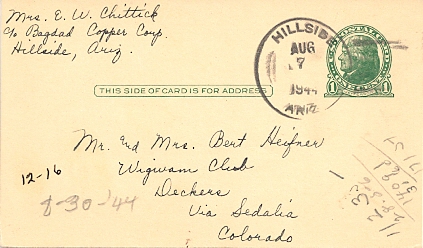 Mrs. E. W. Chittick
c/o Bagdad Copper Corp.
Hillside, Ariz.
HILLSIDE
AUG
7
1944
ARIZ
1
1
THIS SIDE OF CARD IS FOR ADDRESS
Mr. And Mrs. Bert Heifner
Wigwam Club
Deckers
Via Sedalia
Colorado
12-16
8-30-'44